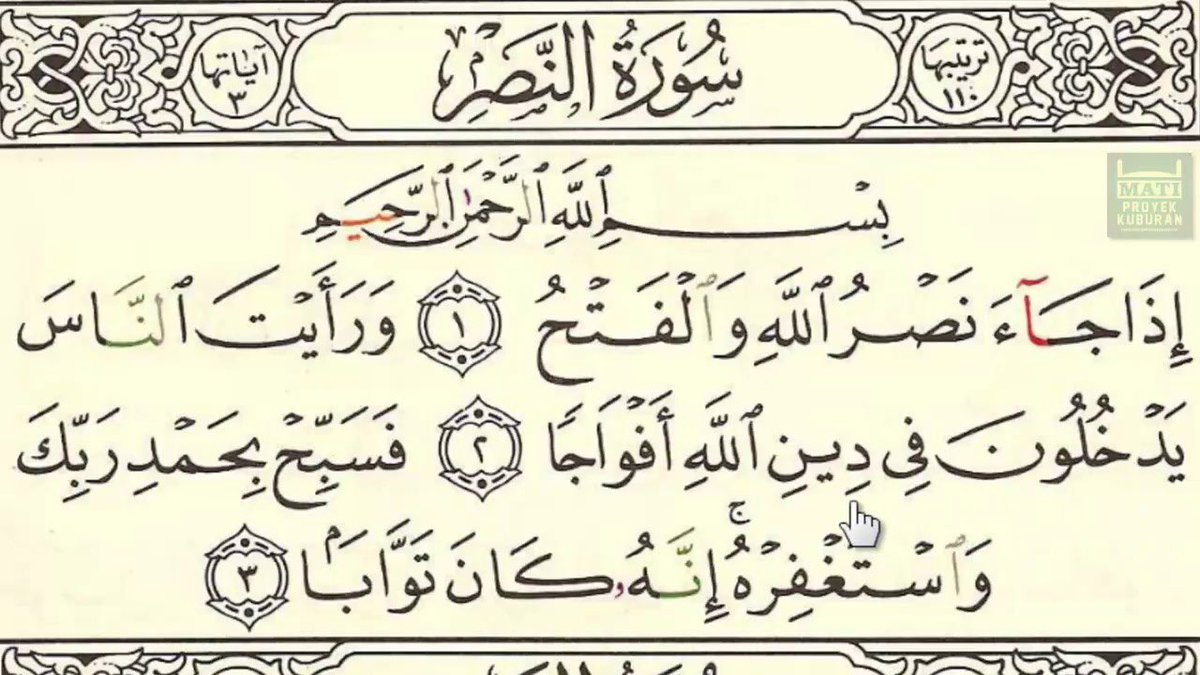 ترتيبها ١١٠
سُورَةُ النَّصْرِ
آياتها ٣
بِسْمِ ٱللَّهِ ٱلرَّحْمَٰنِ ٱلرَّحِيمِ
إِذَا جَآءَ نَصْرُ ٱللَّهِ وَٱلْفَتْحُ ١ وَرَأَيْتَ ٱلنَّاسَ
يَدْخُلُونَ فِى دِينِ ٱللَّهِ أَفْوَاجًا ٢ فَسَبِّحْ بِحَمْدِ رَبِّكَ
وَٱسْتَغْفِرْهُ ۚ إِنَّهُۥ كَانَ تَوَّابَۢا ٣
MATI
PROYEK
KUBURAN